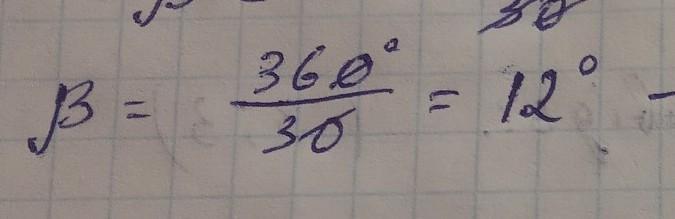 30
β = 360° / 30 = 12° -